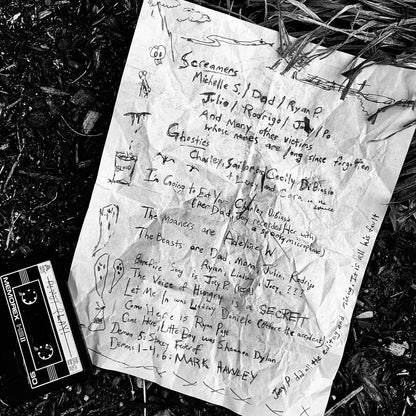 Screamers
Michelle S. / Dad / Ryan P.
Julio / Rodrigo / Jay / Po
And Many other victims
whose names are long since forgotten
Ghosties
Charley, Sailon, Cecily DiBasio
+ Lux and Ezra in no
I'm Going to Eat Your
Charley DiBasio
(then Dad, Jay
with
a spooky microphone)
The Moaners are Adeline W
The Beasts are Dad, Mom, Julio, Rodrigo
Ryan, Lindsay, Joey, ???
Barefire Jay is Jay P.
The Voice of Hungery is a SECRET
Let Me In was Lindsay Daniele (before the accident)
Come Here is Ryan Pitt
Come Here Little Boy was Shannon Dylan
Demon 5: Stacy
Demons 1-4, 6: MARK HAWLEY
Jay P. did all the editing and mixing It is all his fault
BLOOD
MEMOREX
90